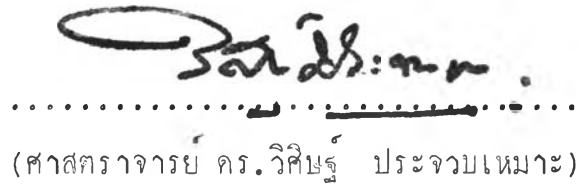 (ศาสตราจารย์ ดร.วิศิษฐ์ ประจวบเหมาะ)